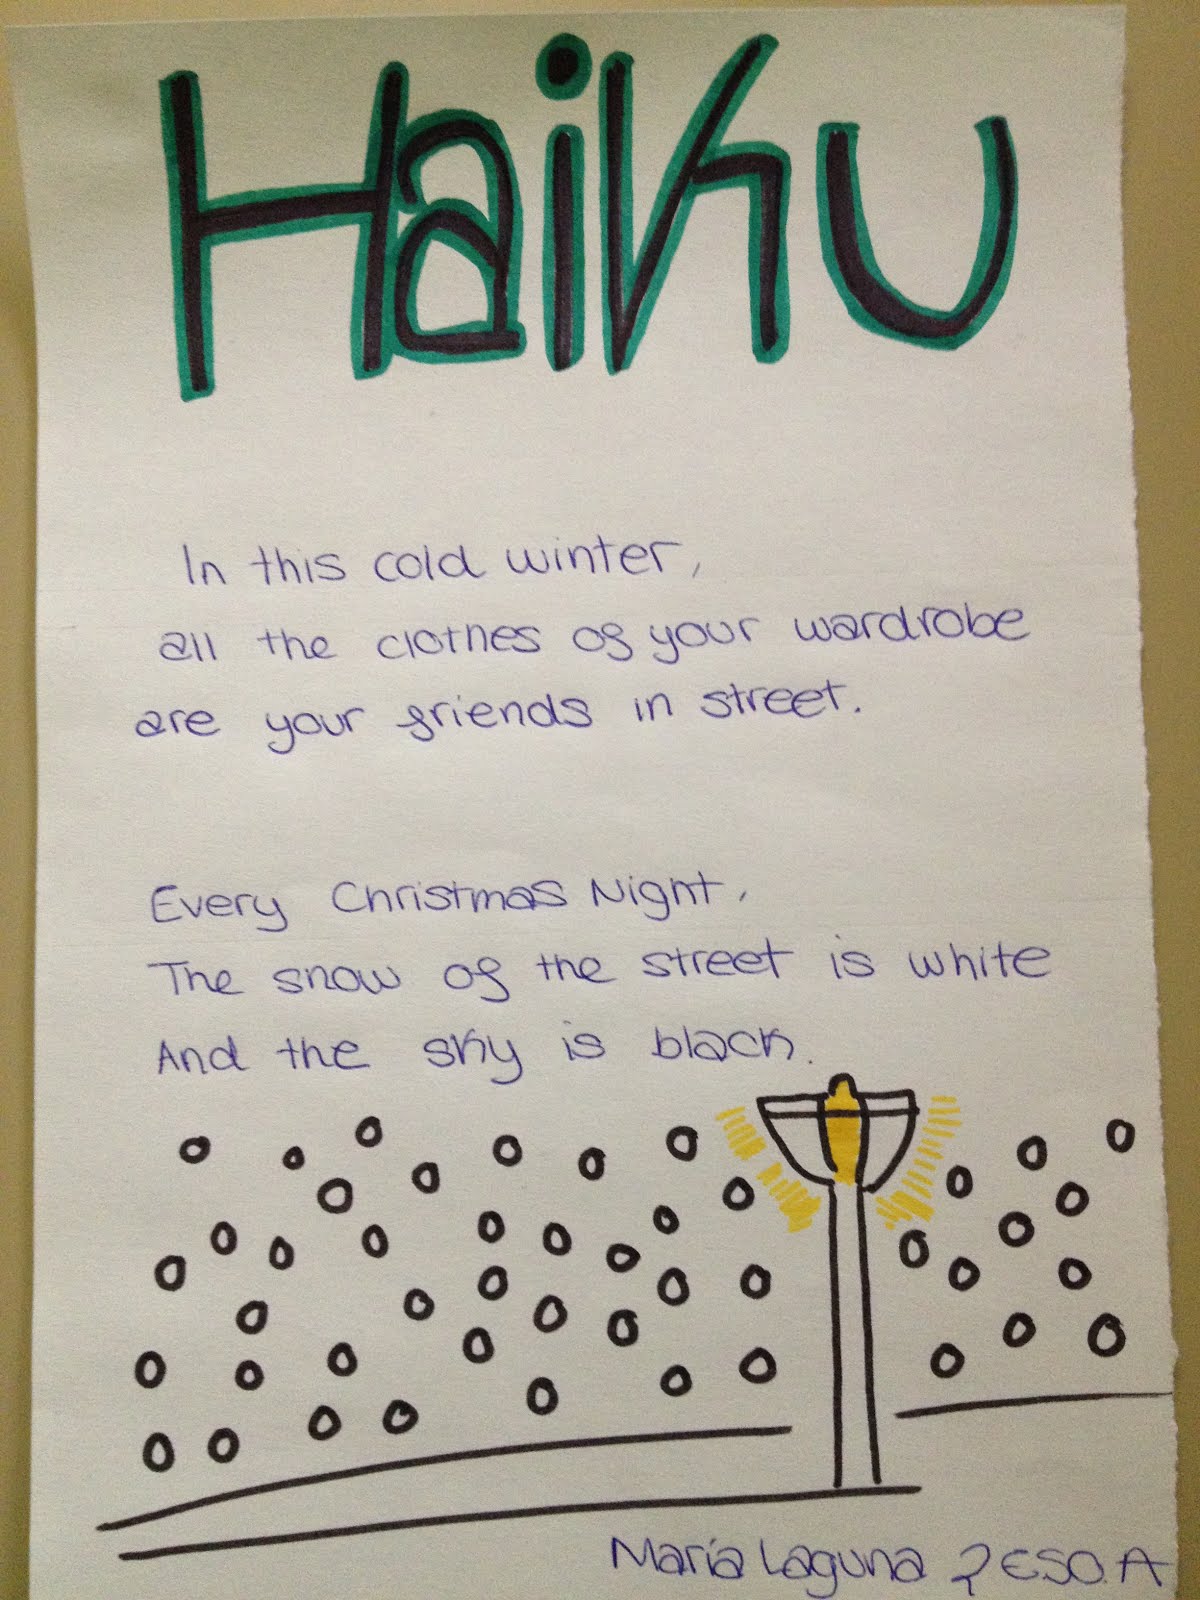 Haiku
In this cold winter,
all the clothes of your wardrobe
are your friends in street.
Every Christmas Night,
The snow of the street is white
And the sky is black.
María Laguna 2 ESO.A